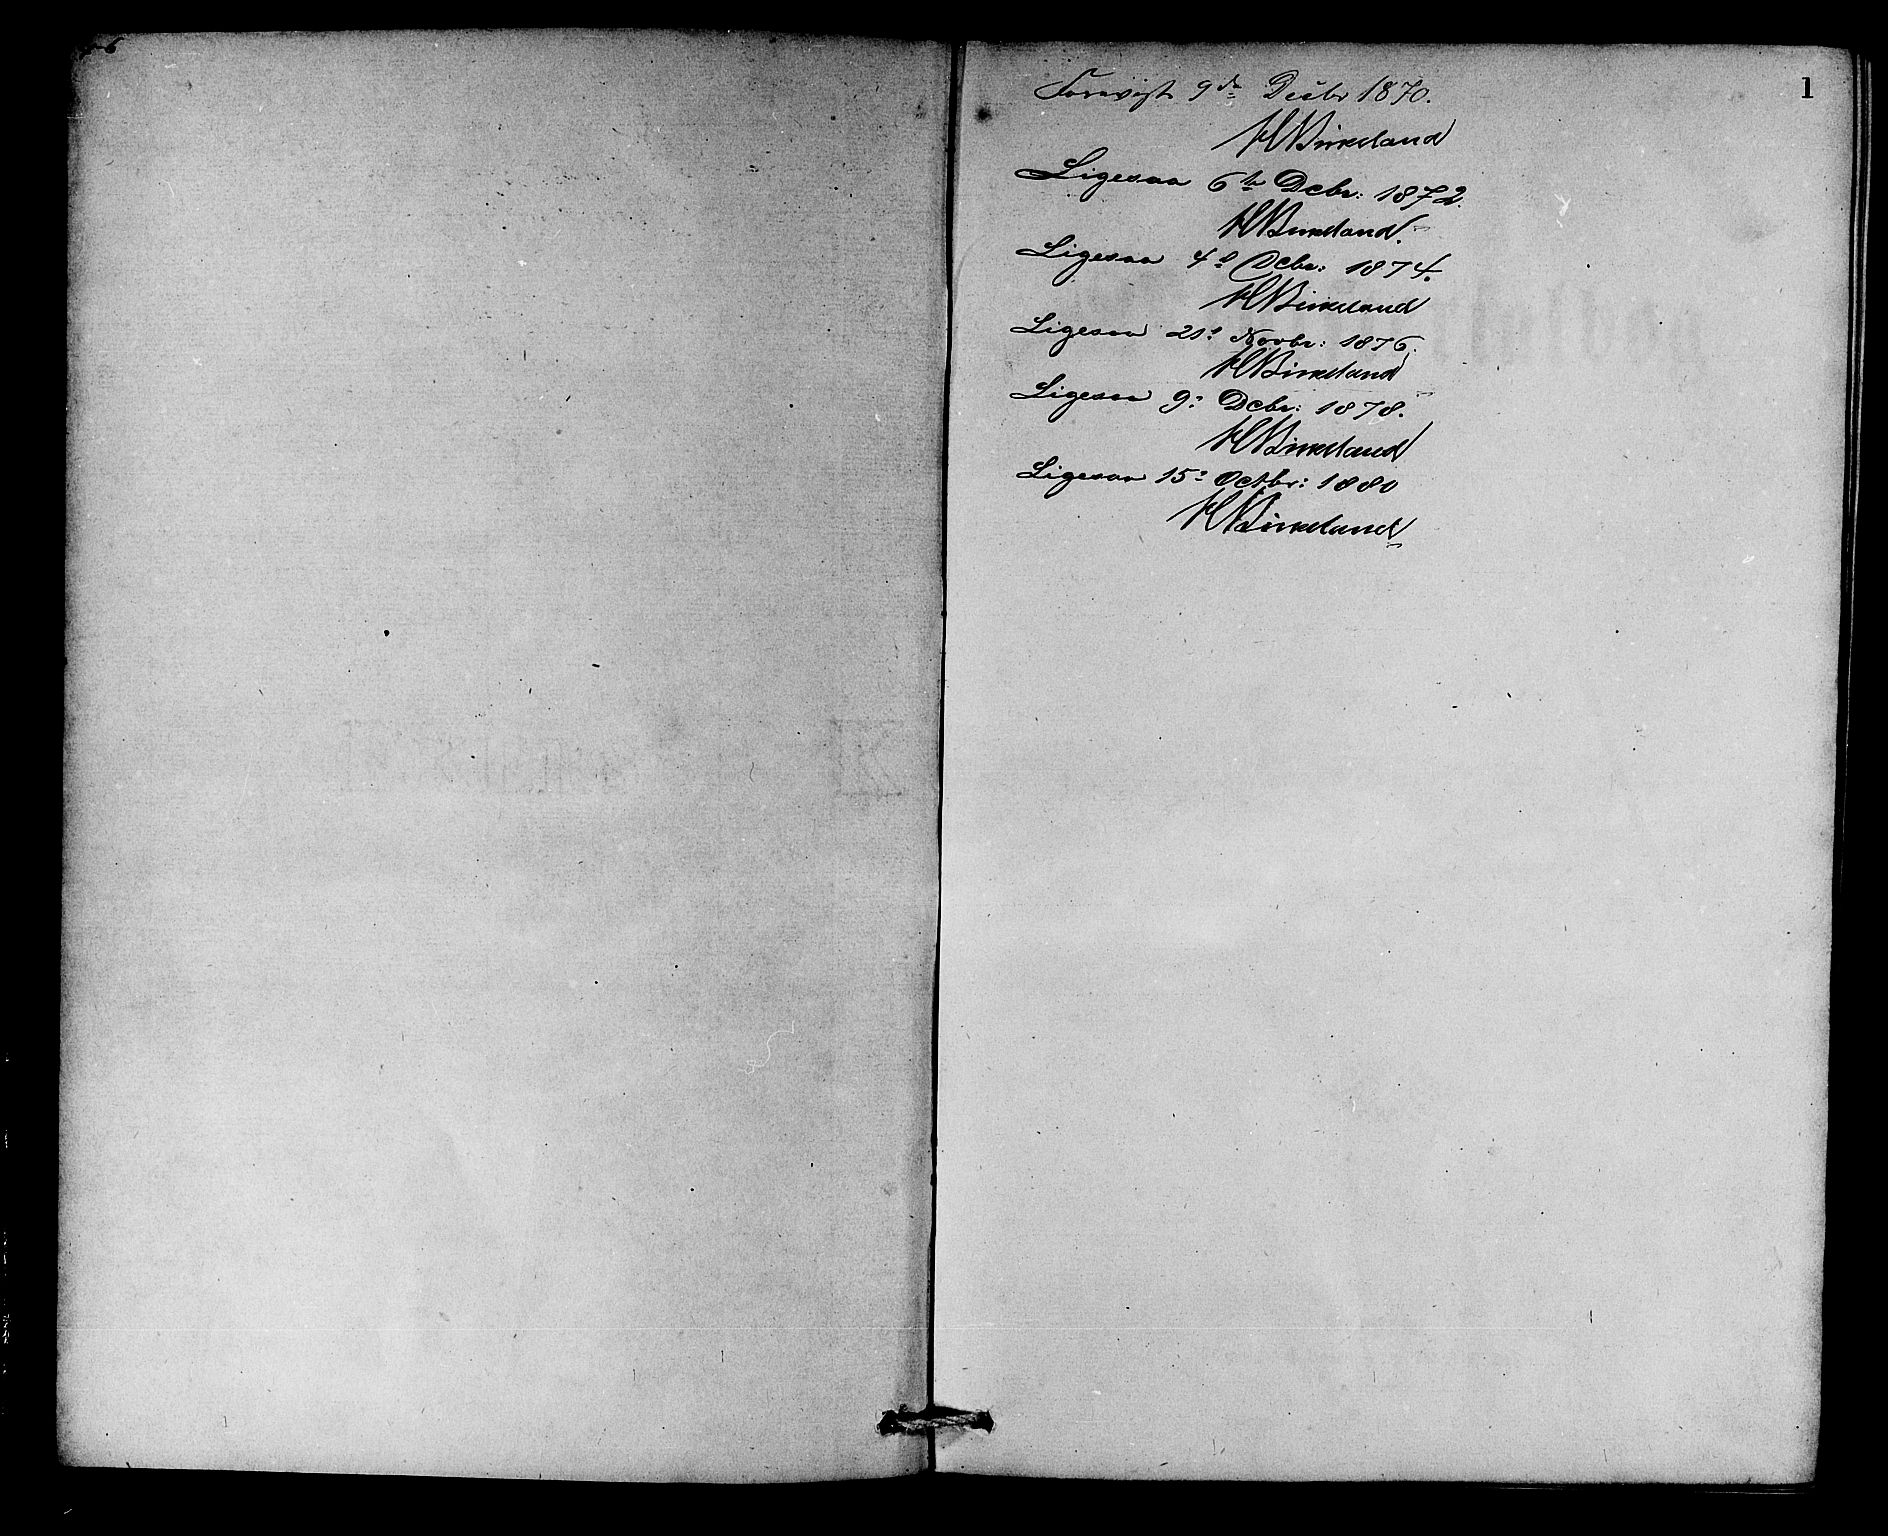 1
Forevist 9de Decbr 1870.
H Birkeland
Ligesaa 6te Dcbr: 1872.
H Birkeland.
Ligesaa 4d Dcbr: 1874.
H Birkeland
Ligesaa 21s Novbr: 1876.
H Birkeland
Ligesaa 9: Dcbr: 1878.
H Birkeland
Ligesaa 15: Octbr: 1880
H Birkeland